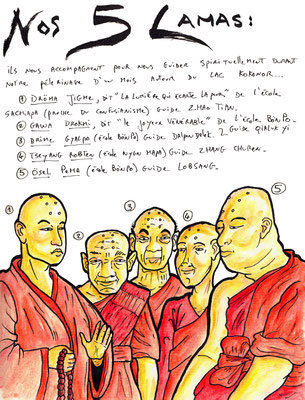 Nos 5 Lamas:
ils nous accompagnent pour nous guider spirituellement durant
notre pélerinage d'un mois autour du lac Kokonor...
① Dröma Jigmé, dit "La lumière qui écarte la peur" de l'école
(proche du confusianisme) guide Zhao Tian.
② Gawa Drokmi, dit "le joyeux vénérable" de l'école BönPo.
③ Drimé Gyalpo (école BönPo) Guide Dalpon Dolok. 2 Guide Qialuk yi
④ Tseyang Robten (école Nyög mapa) Guide Zhang Churen.
⑤ Ösel Pema (école BönPo) guide Lobsang.
① ② ③ ④ ⑤